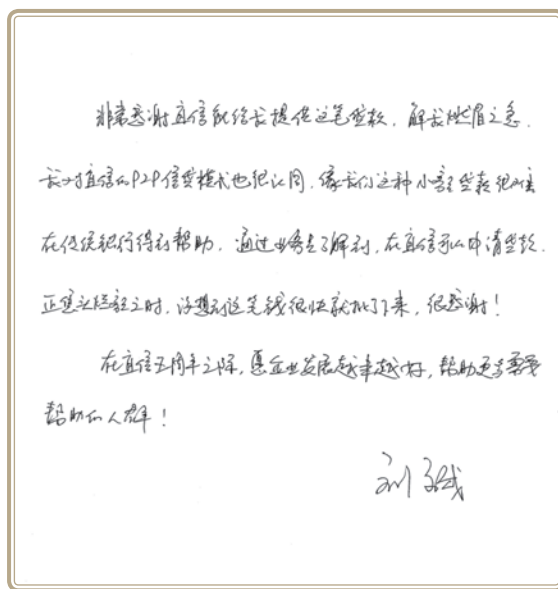 非常感谢宜信能给我提供这笔贷款，解我燃眉之急。
我对宜信的P2P信贷模式也很认同，像我们这种小额贷款很难
在传统银行得到帮助，通过业务员了解到，在宜信可以申请贷款，
正焦头烂额之时，没想到这笔钱很快就批了下来，很感谢！
在宜信五周年之际，愿企业发展越来越好，帮助更多需要
帮助的人群！
刘斌